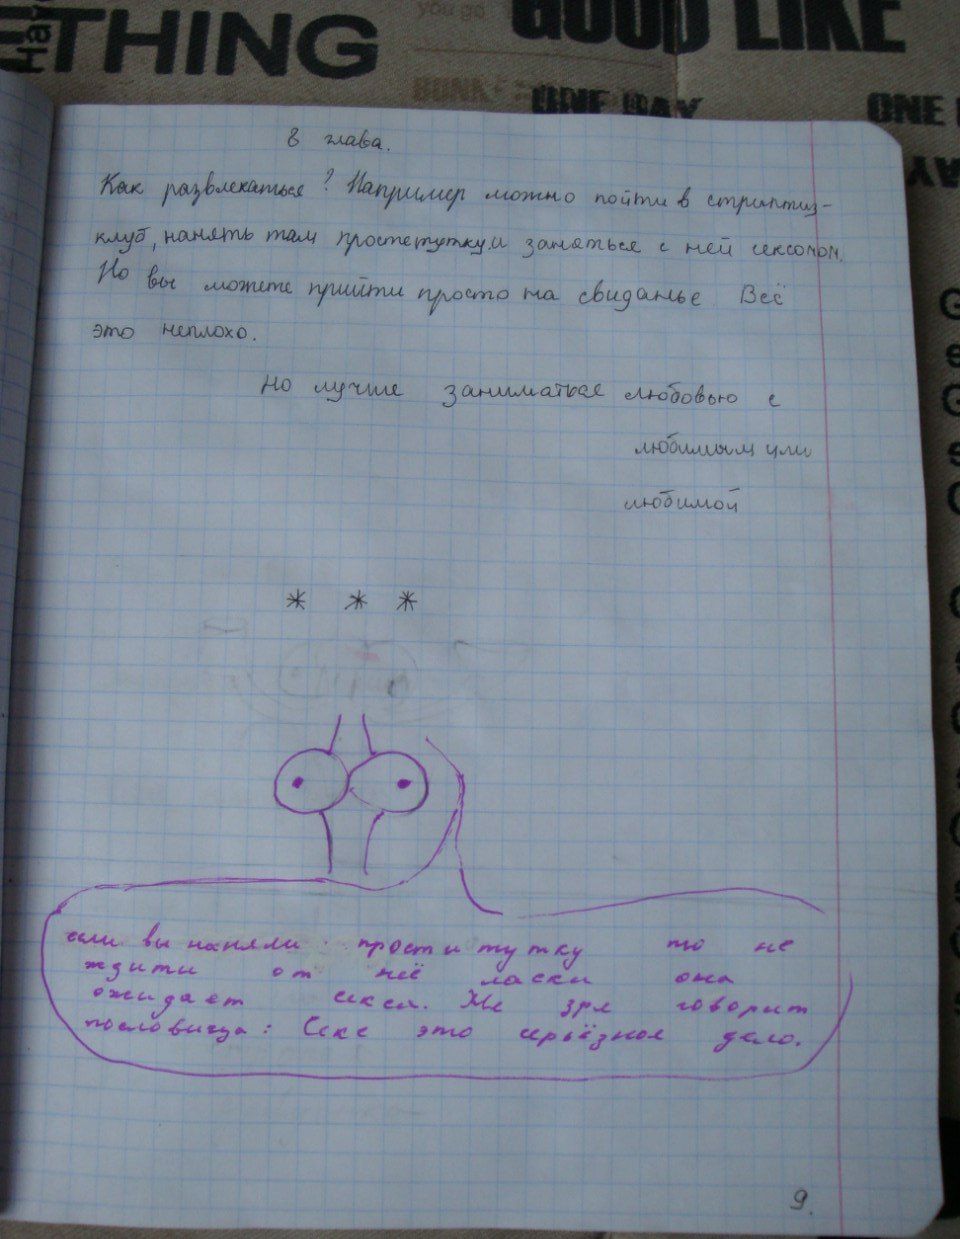 ETHING
Hard
you go
GOOD LIKE
ONE DAY
ONE
8 глава.
Как развлекаться? Например можно пойти в стриптиз-
клуб, нанять там простетутку и заняться с ней сексомом.
Но вы можете прийти просто на свиданье Всё
это неплохо.
Но лучше заниматься любовью с
любимым или
любимой
* * *
если вы наняли проститутку то не
ждити от неё ласки она
ожидает секса. Не зря говорит
пословица: Секс это серьёзное дело.
9.